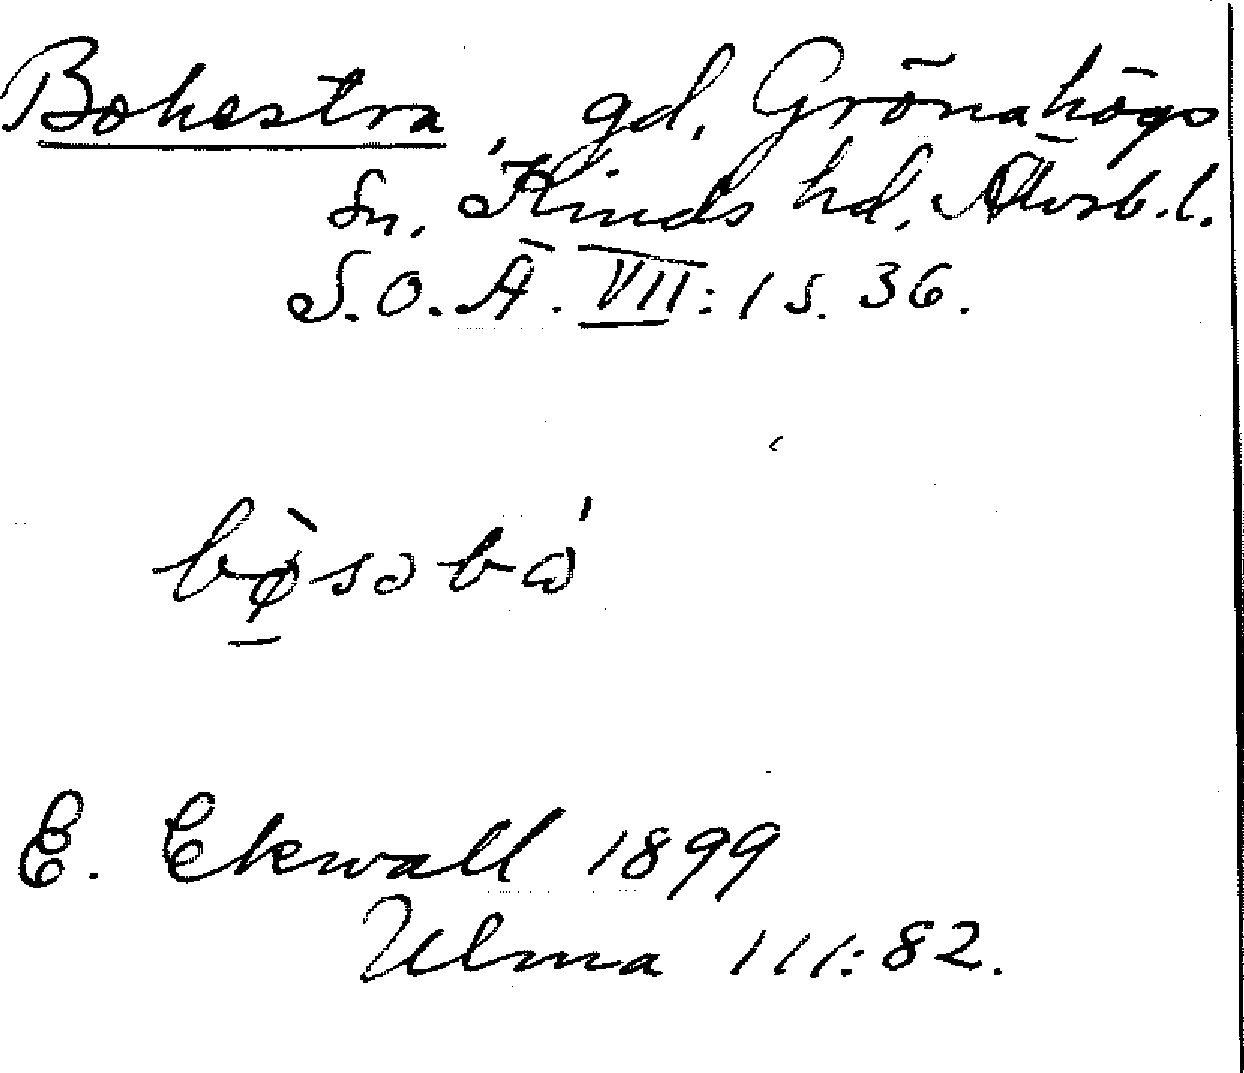 Bohestra, gd, Grönahögs
sn, Kinds hd, Älvsb. l.
S. O. Ä. VII: 1 s. 36.
E. Ekwall 1899
Ulma 111:82.